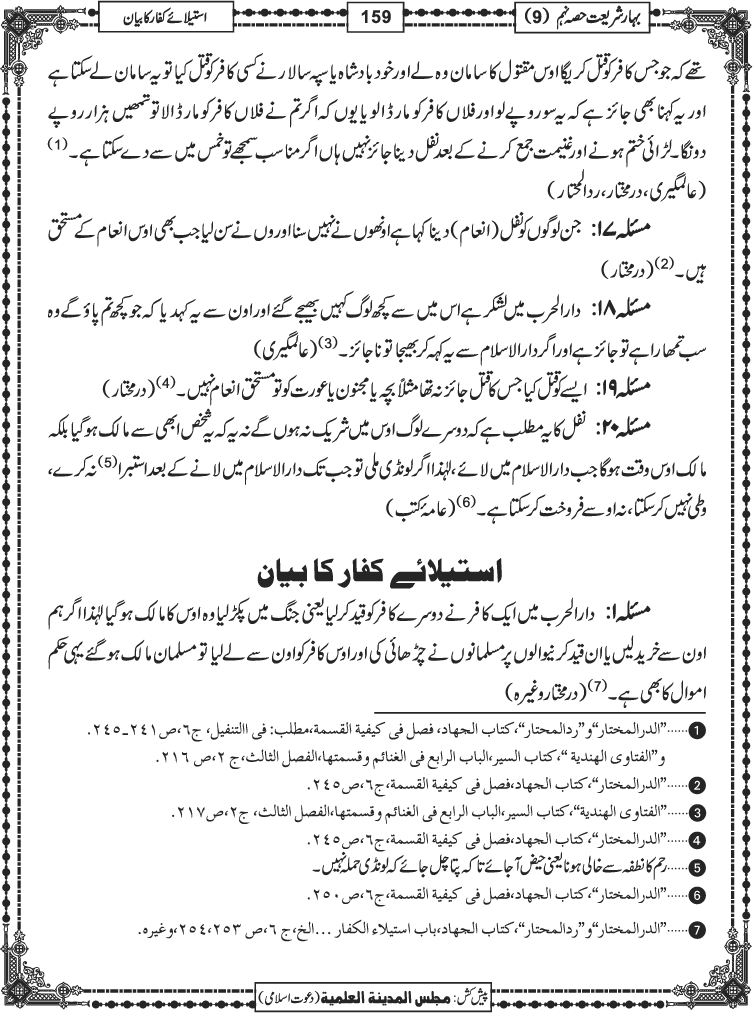 بہارِ شریعت حصہ نہم (9)
159
استیلائے کفار کا بیان
تھے کہ جو جس کافر کو قتل کریگا اوس مقتول کا سامان وہ لے اور خود بادشاہ یا سپہ سالار نے کسی کافر کو قتل کیا تو یہ سامان لے سکتا ہے
اور یہ کہنا بھی جائز ہے کہ یہ سو روپے لو اور فلاں کافر کو مار ڈالو یا یوں کہ اگر تم نے فلاں کافر کو مار ڈالا تو تمھیں ہزار روپے
دونگا۔ لڑائی ختم ہونے اور غنیمت جمع کرنے کے بعد نفل دینا جائز نہیں ہاں اگر مناسب سمجھے تو خمس میں سے دے سکتا ہے۔(1)
(عالمگیری، درمختار، ردالمحتار)
مسئلہ ۱۷: جن لوگوں کو نفل (انعام) دینا کہا ہے اونھوں نے نہیں سنا اوروں نے سن لیا جب بھی اوس انعام کے مستحق
ہیں۔(2) (درمختار)
مسئلہ ۱۸: دارالحرب میں لشکر ہے اس میں سے کچھ لوگ کہیں بھیجے گئے اور اون سے یہ کہدیا کہ جو کچھ تم پاؤ گے وہ
سب تمھارا ہے تو جائز ہے اور اگر دارالاسلام سے یہ کہہ کر بھیجا تو ناجائز۔(3) (عالمگیری)
مسئلہ ۱۹: ایسے کو قتل کیا جس کا قتل جائز نہ تھا مثلاً بچہ یا مجنون یا عورت کو تو مستحق انعام نہیں۔(4) (درمختار)
مسئلہ ۲۰: نفل کا یہ مطلب ہے کہ دوسرے لوگ اوس میں شریک نہ ہوں گے نہ یہ کہ یہ شخص ابھی سے مالک ہوگیا بلکہ
مالک اوس وقت ہوگا جب دارالاسلام میں لائے، لہٰذا اگر لونڈی ملی تو جب تک دارالاسلام میں لانے کے بعد استبرا(5) نہ کرے،
وطی نہیں کرسکتا، نہ اوسے فروخت کرسکتا ہے۔(6) (عامۂ کتب)
استیلائے کفار کا بیان
مسئلہ ۱: دارالحرب میں ایک کافر نے دوسرے کافر کو قید کرلیا یعنی جنگ میں پکڑ لیا وہ اوس کا مالک ہوگیا لہٰذا اگر ہم
اون سے خرید لیں یا ان قید کرنیوالوں پر مسلمانوں نے چڑھائی کی اور اوس کافر کو اون سے لے لیا تو مسلمان مالک ہوگئے یہی حکم
اموال کا بھی ہے۔(7) (درمختار وغیرہ)
1 ......"الدرالمختار" و"ردالمحتار"، کتاب الجهاد، فصل فی کیفیة القسمة، مطلب: فی التنفیل، ج٦، ص٢٤١-٢٤٥.
و"الفتاوی الهندیة"، کتاب السیر، الباب الرابع فی الغنائم وقسمتها، الفصل الثالث، ج٢، ص٢١٦.
2 ......"الدرالمختار"، کتاب الجهاد، فصل فی کیفیة القسمة، ج٦، ص٢٤٥.
3 ......"الفتاوی الهندیة"، کتاب السیر، الباب الرابع فی الغنائم وقسمتها، الفصل الثالث، ج٢، ص٢١٧.
4 ......"الدرالمختار"، کتاب الجهاد، فصل فی کیفیة القسمة، ج٦، ص٢٤٥.
5 ......رحم کا نطفہ سے خالی ہونا یعنی حیض آجائے تاکہ پتا چل جائے کہ لونڈی حملہ نہیں۔
6 ......"الدرالمختار"، کتاب الجهاد، فصل فی کیفیة القسمة، ج٦، ص٢٥٠.
7 ......"الدرالمختار" و"ردالمحتار"، کتاب الجهاد، باب استیلاء الکفار ...الخ، ج٦، ص٢٥٣، ٢٥٤، وغیرہ.
پیش کش: مجلس المدینة العلمیة (دعوت اسلامی)